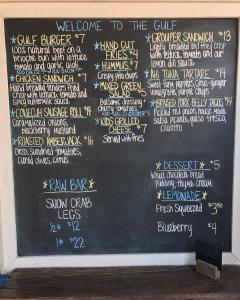 WELCOME TO THE GULF
GULF BURGER $7
100% natural beef on a
brioche bun with lettuce,
tomato and garlic aioli
ADD CHEESE $1 ADD BACON
CHICKEN SANDWICH $7
Hand breaded tenders fried
crisp with lettuce, tomato and
spicy buttermilk sauce
CONECUH SAUSAGE ROLL $14
Caramelized onions,
blackberry mustard
ROASTED AMBERJACK $16
Orzo, sundried tomatoes,
cured olives, citrus
HAND CUT
FRIES $4
HUMMUS $7
Crispy pita chips
MIXED GREEN
SALAD
Balsamic dressing
cherry tomatoes
KIDS GRILLED
CHEESE $7
Served with fries
GROUPER SANDWICH $13
Lightly breaded and fried crisp
with lettuce, tomato and our
lemon dill sauce
AHI TUNA TARTARE $14
Sweet Pony peppers, citrus-ginger
vinaigrette, purple chips
BRAISED PORK BELLY TACOS $14
Pickled red onion, house made
salsa picante, queso fresco,
cilantro
RAW BAR
SNOW CRAB
LEGS
½# $12
1# $22
DESSERT $5
White chocolate bread
pudding, thyme cream
LEMONADE
Fresh Squeezed $3.50
Blueberry $4